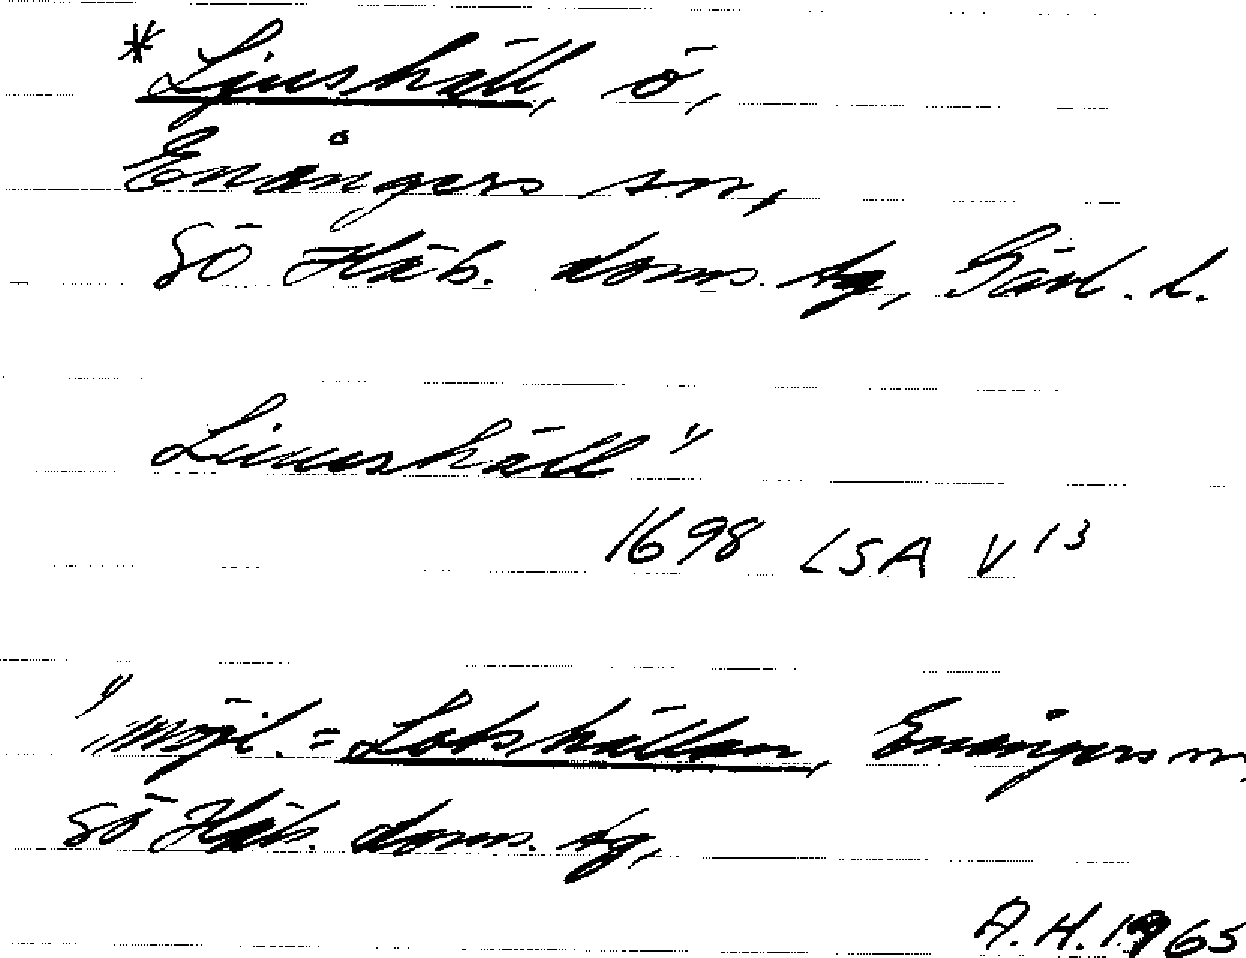 * Ljushäll, ö,
Enångers sn,
SÖ Häls. doms. tg, Gävl. l.
Liuushäll 1)
1698 LSA V 13
1) möjl. = Lotshällan, Enångers sn,
SÖ Häls. doms. tg,
A.H. 1965